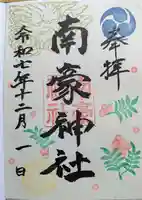 奉拝
南豪神社
令和七年十二月一日